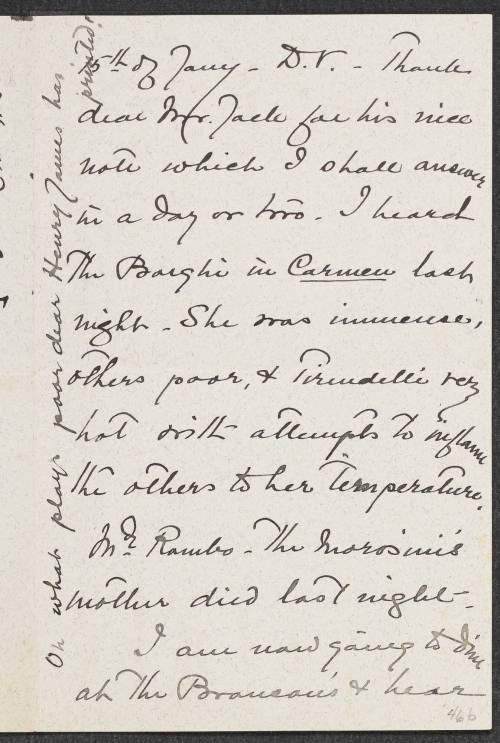 5th of Jany - D.V. - Thank
dear Mr. Jack for his nice
note which I shall answer
in a day or two. I heard
The Borghi in Carmen last
night - She was immense,
others poor, & Tirindelli very
hot with attempts to inflame
the others to her Temperature.
Mr Rambo - The Morosini's
mother died last night -
I am now going to dine
at the Bronson's & hear
466
Oh what plays poor dear Henry James has
printed!